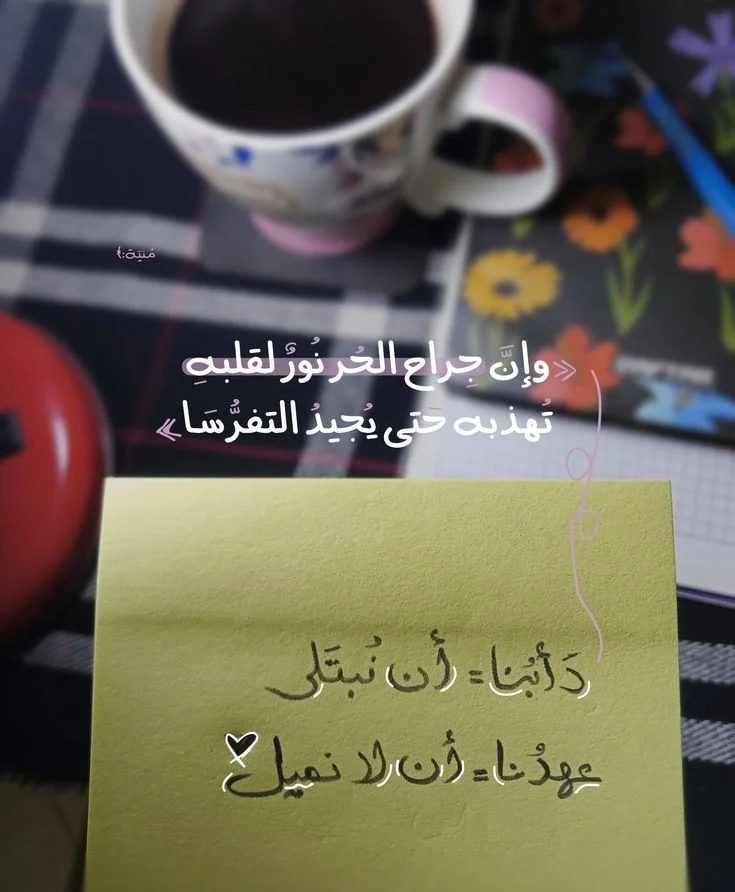 مُنيَة:}
«وإنَّ جِراح الحُر نُورٌ لقلبهِ
تُهذبه حَتى يُجيدُ التفرُّسَا»
دَأبُنا = أن نُبتَلى
عهدُنا = أن لا نميل